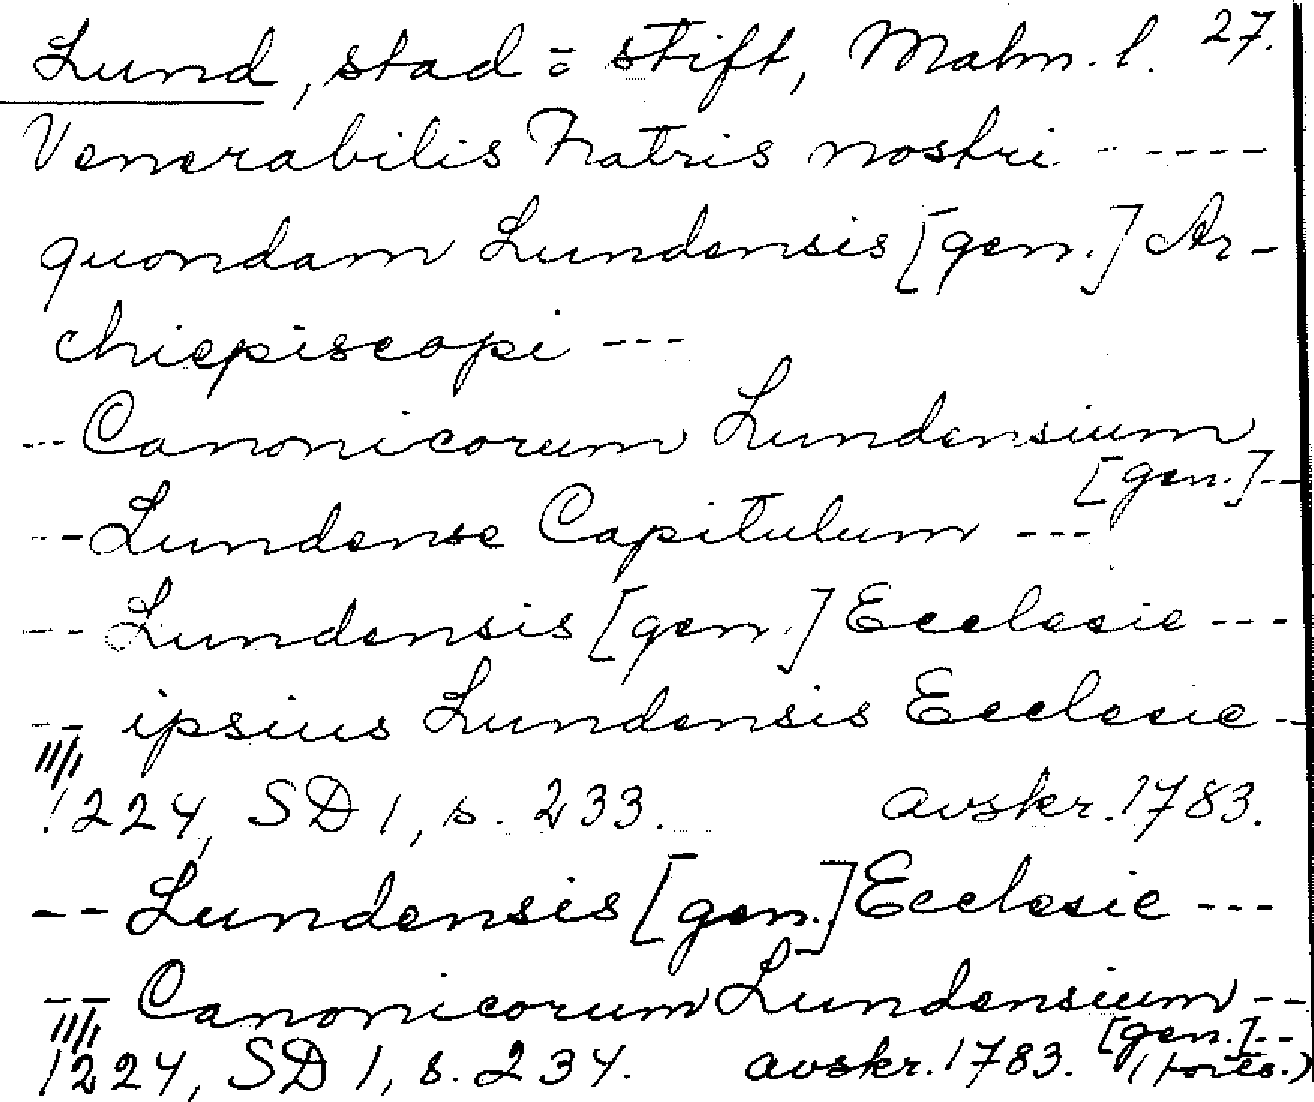 Lund, stad = stift, Malm. l. 27.
Venerabilis Fratris nostri -----
quondam Lundensis [gen.] Ar-
chiepiscopi ---
-- Canonicorum Lundensium
[gen.] --
-- Lundense Capitulum ---
-- Lundensis [gen.] Ecclesie ---
-- ipsius Lundensis Ecclesie --
11/1
1224, SD 1, s. 233. avskr. 1783.
-- Lundensis [gen.] Ecclesie ---
-- Canonicorum Lundensium --
11/1 [gen.] --
1224, SD 1, s. 234. avskr. 1783. (forts.)